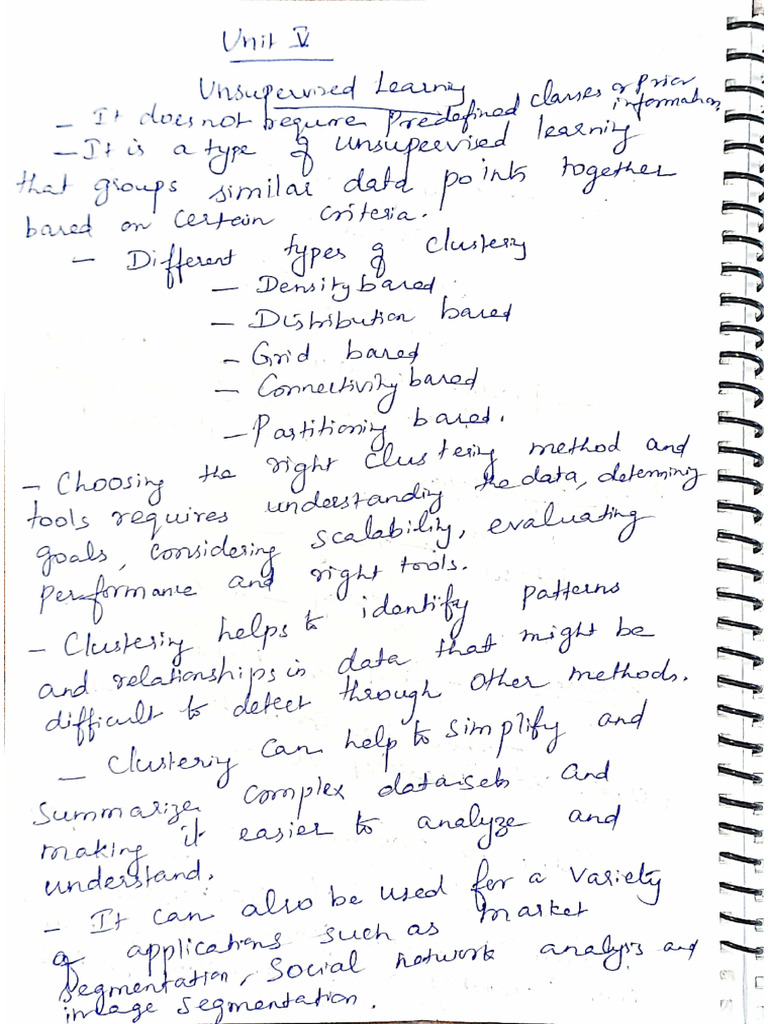 Unit V
Unsupervised Learning
- It does not require Predefined classes or Prior information
- It is a type of unsupervised learning
that groups similar data points together
based on certain criteria.
- Different types of clustering
- Density based
- Distribution based
- Grid based
- Connectivity based
- Partitioning based.
- Choosing the right clustering method and
tools requires understanding the data, determining
goals, considering scalability, evaluating
performance and right tools.
- Clustering helps to identify patterns
and relationships in data that might be
difficult to detect through other methods.
- Clustering can help to simplify and
summarize complex datasets and
making it easier to analyze and
understand.
- It can also be used for a variety
of applications such as market
segmentation, social network analysis and
image segmentation.